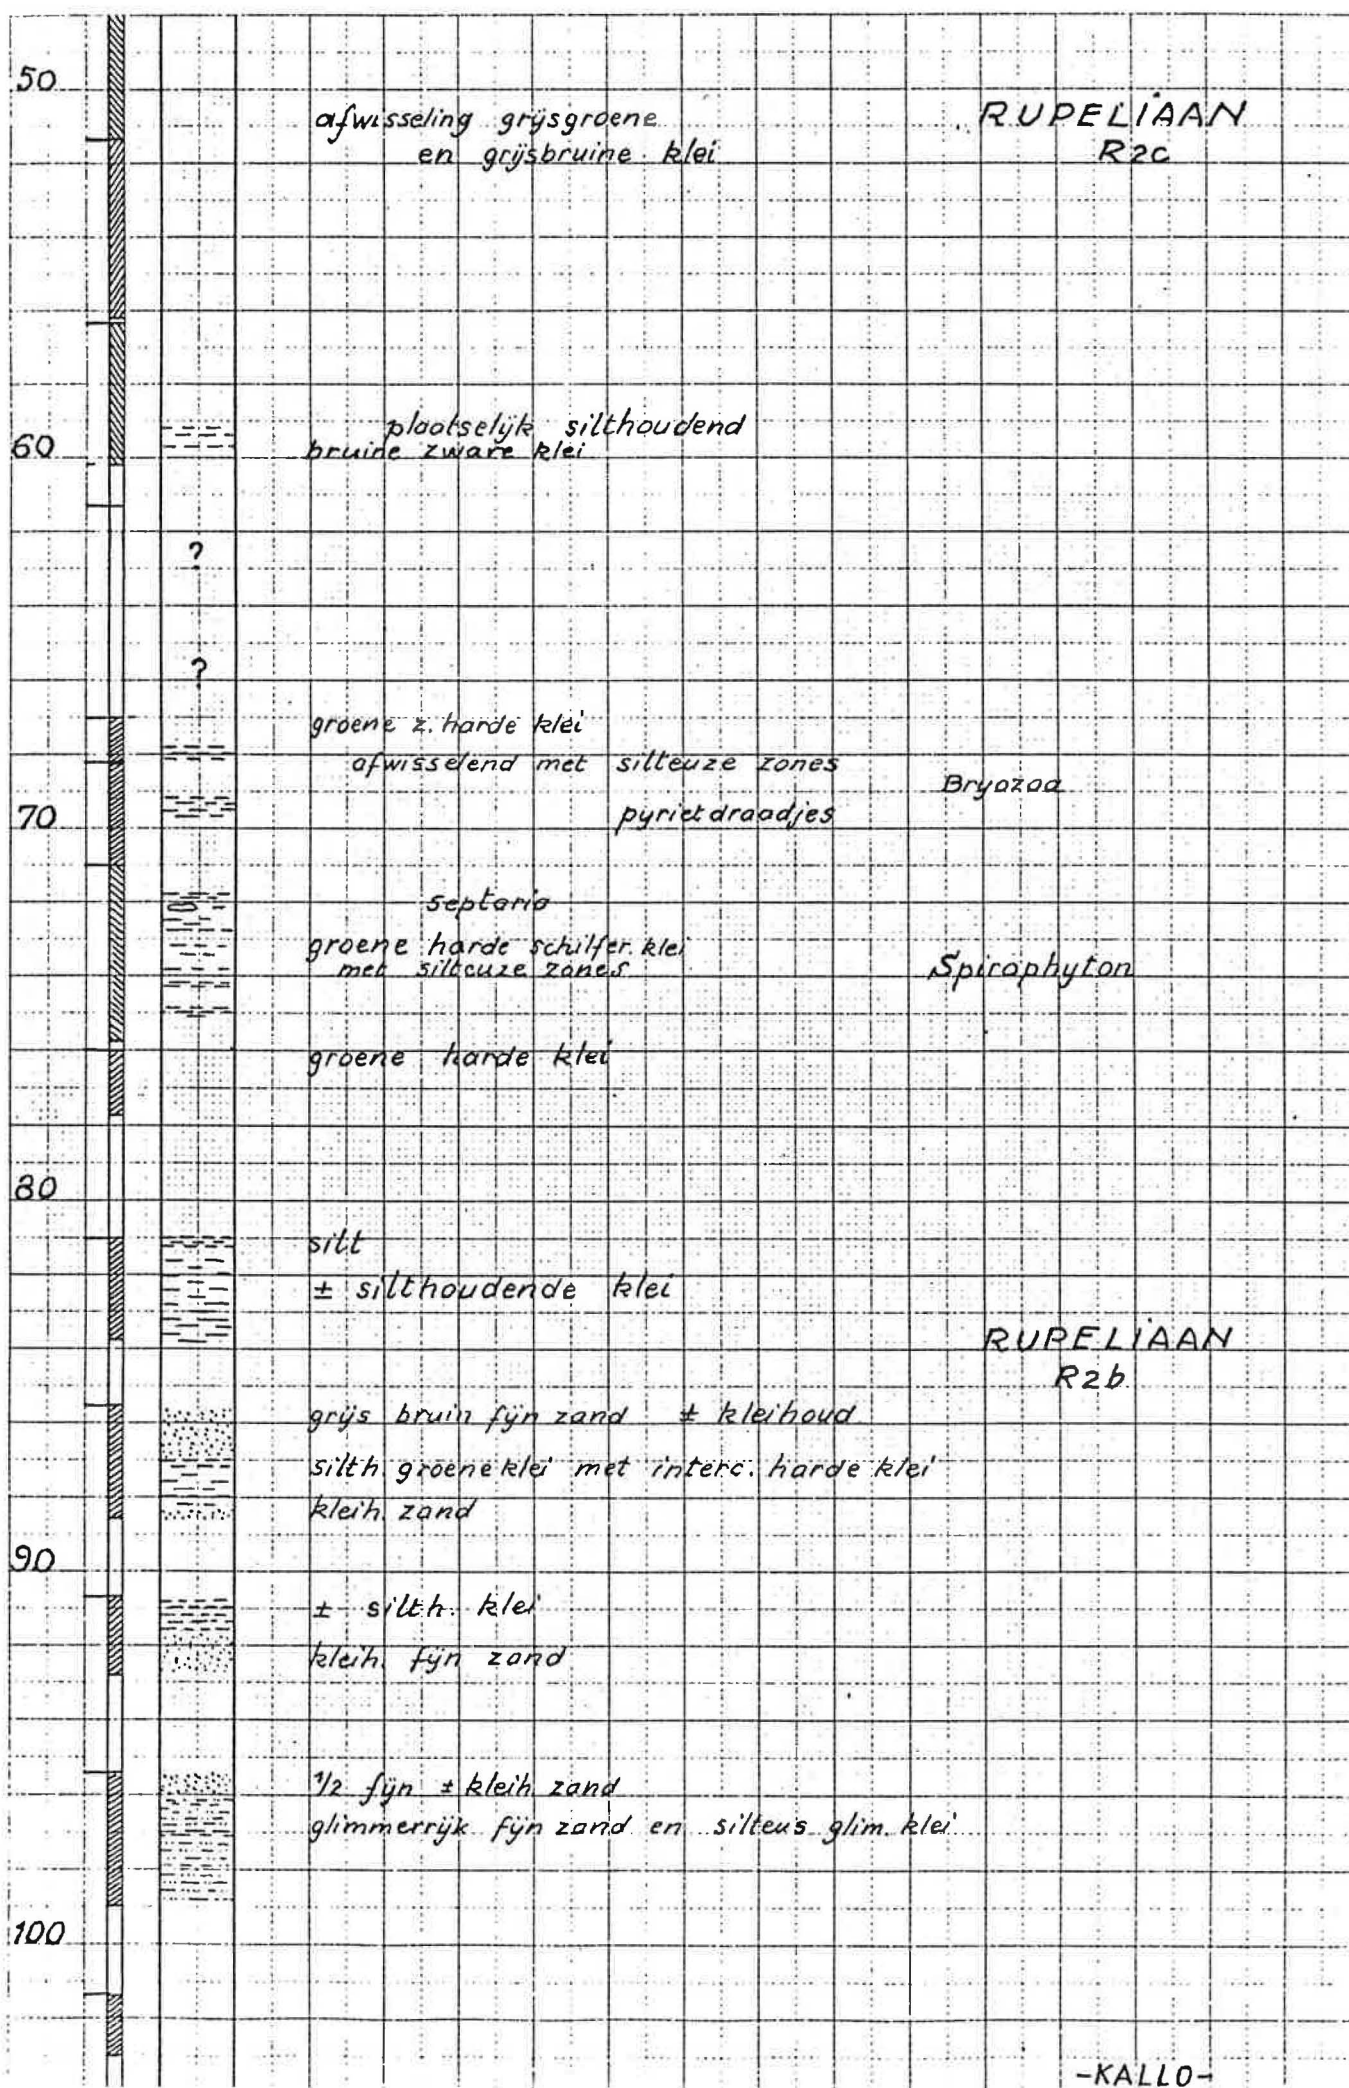 50
afwisseling grijsgroene
en grijsbruine klei
RUPELIAAN
R2c
plaatselijk silthoudend
60
bruine zware klei
?
?
groene z. harde klei
afwisselend met silteuze zones
Bryozoa
70
pyrietdraadjes
septaria
groene harde schilfer. klei
met silteuze zones
Spirophyton
groene harde klei
80
silt
± silthoudende klei
RUPELIAAN
R2b
grijs bruin fijn zand ± kleihoud
silth. groene klei met interc. harde klei
kleih. zand
90
± silth. klei
kleih. fijn zand
1/2 fijn ± kleih. zand
glimmerrijk fijn zand en silteus glim. klei
100
-KALLO-